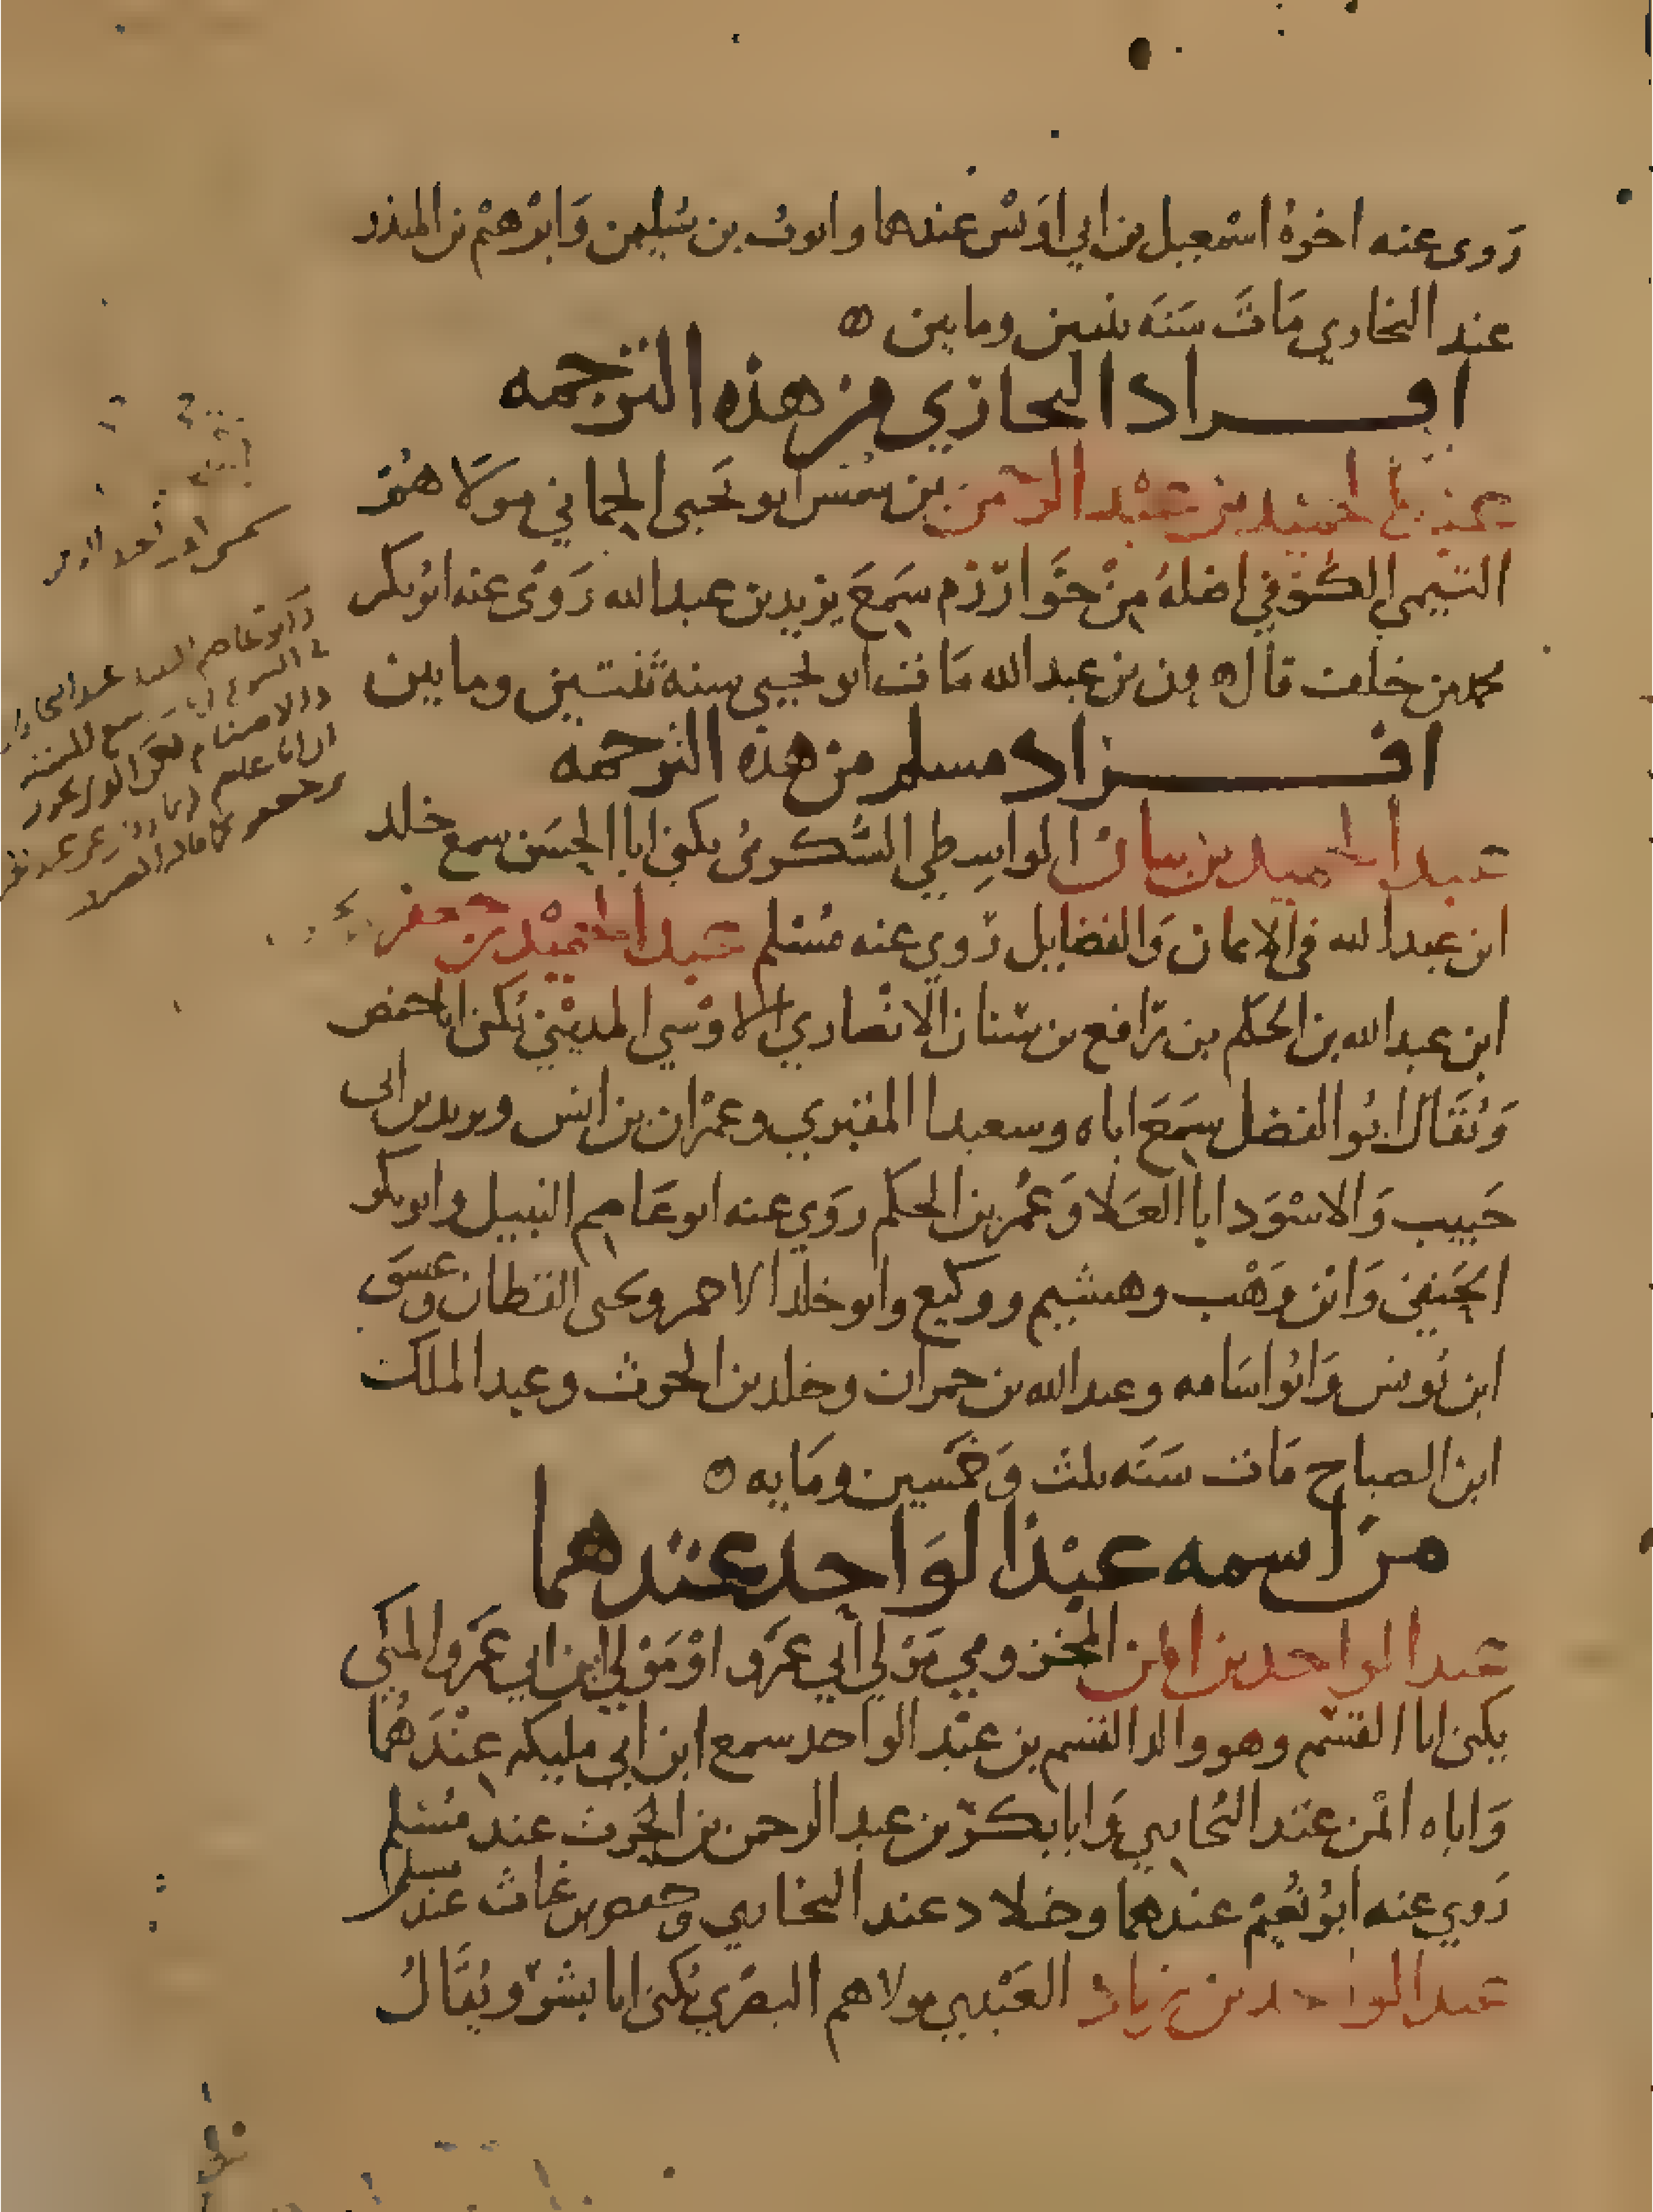 روى عنه اخوه اسمعيل بن ابي اويس عندهما وايوب بن سليمن وابرهيم بن المنذر
عند البخاري مات سنه ثنتين ومايتين
افراد البخاري من هذه الترجمه
عبد الحميد بن عبد الرحمن بن شمس ابو يحيى الحماني مولاهم
التيمي الكوفي اصله من خوارزم سمع يزيد بن عبد الله روى عنه ابو بكر
محمد بن خلف قال هرون بن عبد الله مات ابو يحيى سنة ثنتين ومايتين
افراد مسلم من هذه الترجمه
عبد الحميد بن بيان الواسطي السكري يكنى ابا الحسن سمع خلد
ابن عبد الله في الايمان والفضايل روى عنه مسلم عبد الحميد بن جعفر
ابن عبد الله بن الحكم بن رافع بن سنان الانصاري الاوسي المديني يكنى ابا حفص
ويقال ابو الفضل سمع اباه وسعيدا المقبري وعمران بن انس ويزيد بن ابي
حبيب والاسود ابا العلا وعمر بن الحكم روى عنه ابو عاصم النبيل وابو بكر
الحنفي وابن وهب وهشيم ووكيع وابو خلد الاحمر ويحيى القطان وعيسى
ابن يونس وابو اسامه وعبد الله بن حمران وخلد بن الحرث وعبد الملك
ابن الصباح مات سنه ثلث وخمسين ومايه
من اسمه عبد الواحد عندهما
عبد الواحد بن ايمن المخزومي مولى ابي عمرو او مولى ابن ابي عمرو المكي
يكنى ابا القسم وهو والد القسم بن عبد الواحد سمع ابن ابي مليكه عندهما
واباه ايمن عند البخاري وابا بكر بن عبد الرحمن بن الحرث عند مسلم
روى عنه ابو نعيم عندهما وخلاد عند البخاري وحفص بن غياث عند مسلم
عبد الواحد بن زياد العبدي مولاهم البصري يكنى ابا بشر ويقال